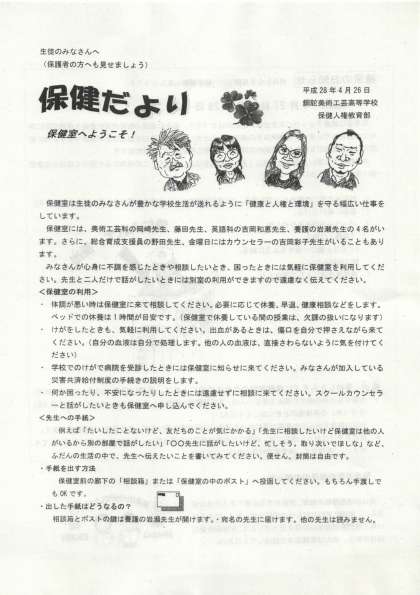 生徒のみなさんへ
(保護者の方へも見せましょう)
保健だより
平成28年4月26日
銅駝美術工芸高等学校
保健人権教育部
保健室へようこそ!
保健室は生徒のみなさんが豊かな学校生活が送れるように「健康と人権と環境」を守る幅広い仕事を
しています。
保健室には、美術工芸科の岡崎先生、藤田先生、英語科の吉岡和恵先生、養護の岩瀬先生の4名がい
ます。さらに、総合育成支援員の野田先生、金曜日にはカウンセラーの吉岡彩子先生がいることもあり
ます。
みなさんが心身に不調を感じたときや相談したいとき、困ったときには気軽に保健室を利用してくだ
さい。先生と二人だけで話がしたいときには別室の利用ができますので遠慮なく伝えてください。
<保健室の利用>
・ 体調が悪い時は保健室に来て相談してください。必要に応じて休養、早退、健康相談などをします。
ベッドでの休養は1時間が目安です。(保健室で休養している間の授業は、欠課の扱いになります)
・ けがをしたときも、気軽に利用してください。出血があるときは、傷口を自分で押さえながら来て
ください。(自分の血液は自分で処理します。他の人の血液は、直接さわらないように気を付けてく
ださい)
・ 学校でのけがで病院を受診したときには保健室に知らせに来てください。みなさんが加入している
災害共済給付制度の手続きの説明をします。
・ 何か困ったり、不安になったりしたときには遠慮せずに相談に来てください。スクールカウンセラ
ーと話がしたいときも保健室へ申し込んでください。
<先生への手紙>
例えば「たいしたことないけど、友だちのことが気にかかる」「先生に相談したいけど保健室は他の人
がいるから別の部屋で話がしたい」「〇〇先生に話がしたいけど、忙しそう。取り次いでほしな」など、
ふだんの生活の中で、先生へ伝えたいことを書いてみてください。便せん、封筒は自由です。
・手紙を出す方法
保健室前の廊下の「相談箱」または「保健室の中のポスト」へ投函してください。もちろん手渡しで
もOKです。
・出した手紙はどうなるの?
相談箱とポストの鍵は養護の岩瀬先生が開けます。・宛名の先生に届けます。他の先生は読みません。